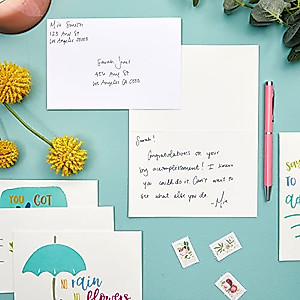 Mia Smith
123 Any St
Los Angeles 00000
Sarah Jones
456 Any St
Los Angeles CA 00000
Sarah!
Congratulations on your
big accomplishment! I knew
you could do it. Can't wait to
see what else you do.
-Mia
YOU GOT
NO rain
NO flowers
TO